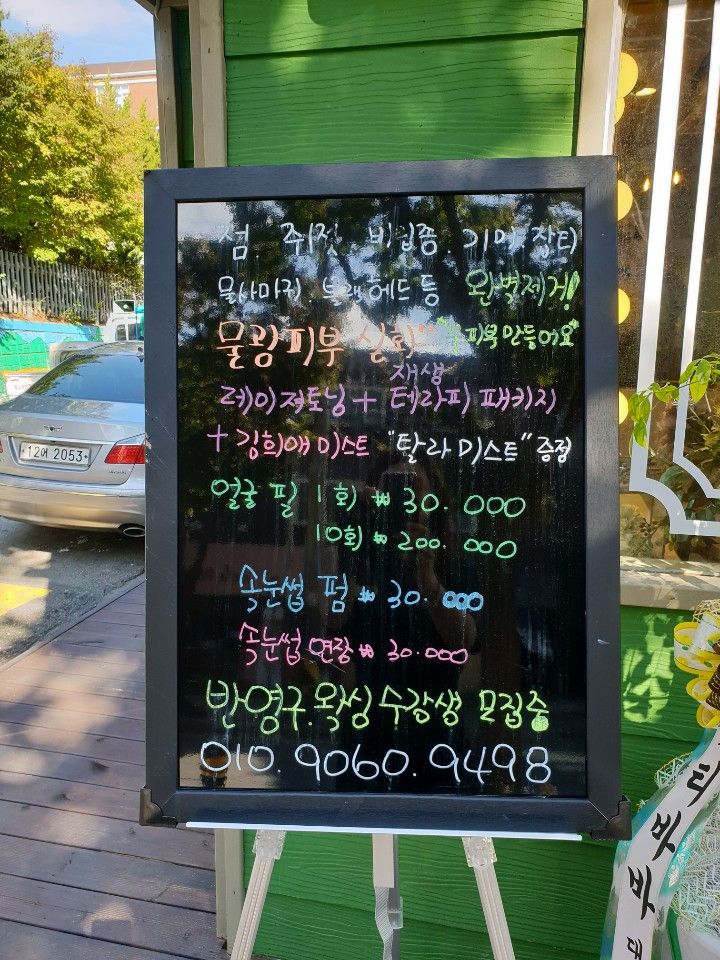 점. 쥐젖. 비립종 기미 잡티
물사마귀. 블랙헤드 등 완벽제거!
물광피부 실화"" 피부 만들어요"
재생
레이저토닝 + 테라피 패키지
+ 김희애 미스트 "탈라 미스트" 증정
얼굴 필 1회 ₩ 30.000
10회 ₩ 200.000
속눈썹 펌 ₩ 30.000
속눈썹 연장 ₩ 30.000
반영구.왁싱 수강생 모집중
010.9060.9498
12어 2053
티
부
바
대